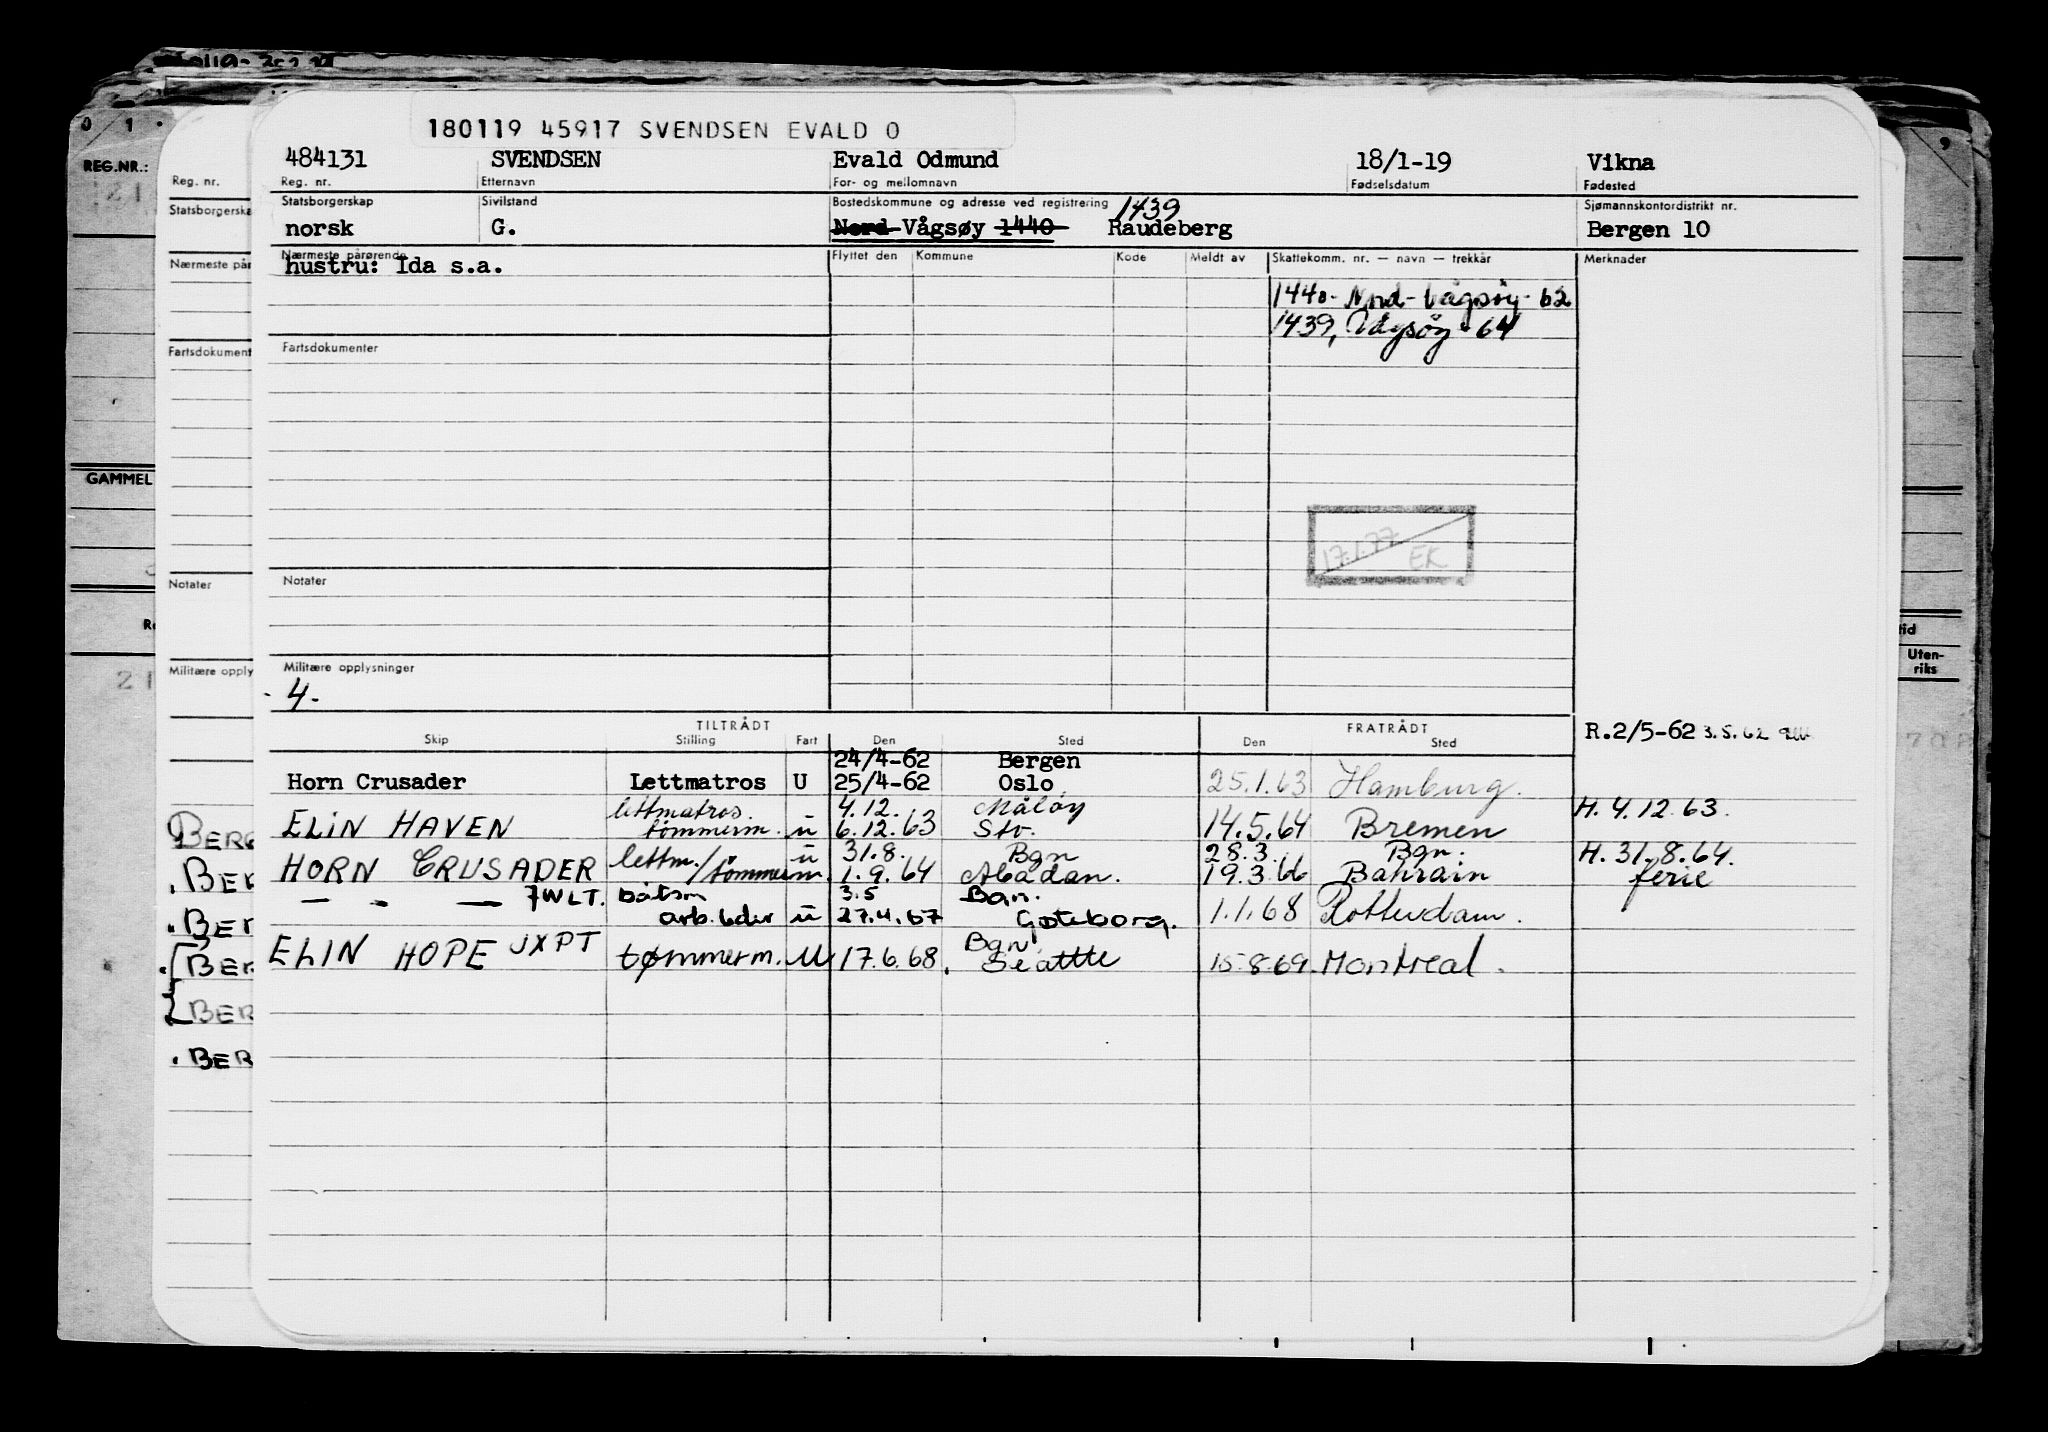 180119 45917 SVENDSEN EVALD O
484131 SVENDSEN Evald Odmund 18/1-19 Vikna
Reg. nr. Etternavn For- og mellomnavn Fødselsdatum Fødested
Statsborgerskap Sivilstand Bostedskommune og adresse ved registrering 1439 Sjømannskontordistrikt nr.
norsk G. Nord-Vågsøy 1440 Raudeberg Bergen 10
Nærmeste pårørende Flyttet den Kommune Kode Meldt av Skattekomm. nr. — navn — trekkår Merknader
hustru: Ida s.a.
1440 - Nord-Vågsøy - 62
1439, Vågsøy - 64
Fartsdokumenter
17.1.77 EK
Notater
Militære opplysninger
4.
TILTRÅDT FRATRÅDT
Skip Stilling Fart Den Sted Den Sted
R.2/5-62 3.5.62
24/4-62 Bergen
Horn Crusader Lettmatros U 25/4-62 Oslo 25.1.63 Hamburg.
lettmatros. 4.12. Måløy H. 4.12.63.
ELIN HAVEN tømmerm. u 6.12.63 Stv. 14.5.64 Bremen
u 31.8. Bgn 28.3. Bgn. H. 31.8.64.
HORN CRUSADER lettm./tømmerm. 1.9.64 Abadan. 19.3.66 Bahrain ferie
— - — JWLT. båtsm 3.5 Bgn.
arb.leder u 27.4.67 Gøteborg. 1.1.68 Rotterdam.
Bgn
ELIN HOPE JXPT tømmerm. U 17.6.68. Seattle 15.8.69. Montreal.
0 1
REG.NR.:
21
GAMMEL
21
Reg. nr.
Statsborgerska
Nærmeste pår
Fartsdokument
Notater
Militære opply
BERG
. BER
. BER
. [BER
[BER
. BER
9
tid
Uten-
riks